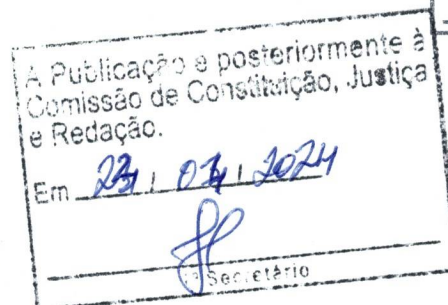 À Publicação e posteriormente à
Comissão de Constituição, Justiça
e Redação.
Em / / 2024
Secretário